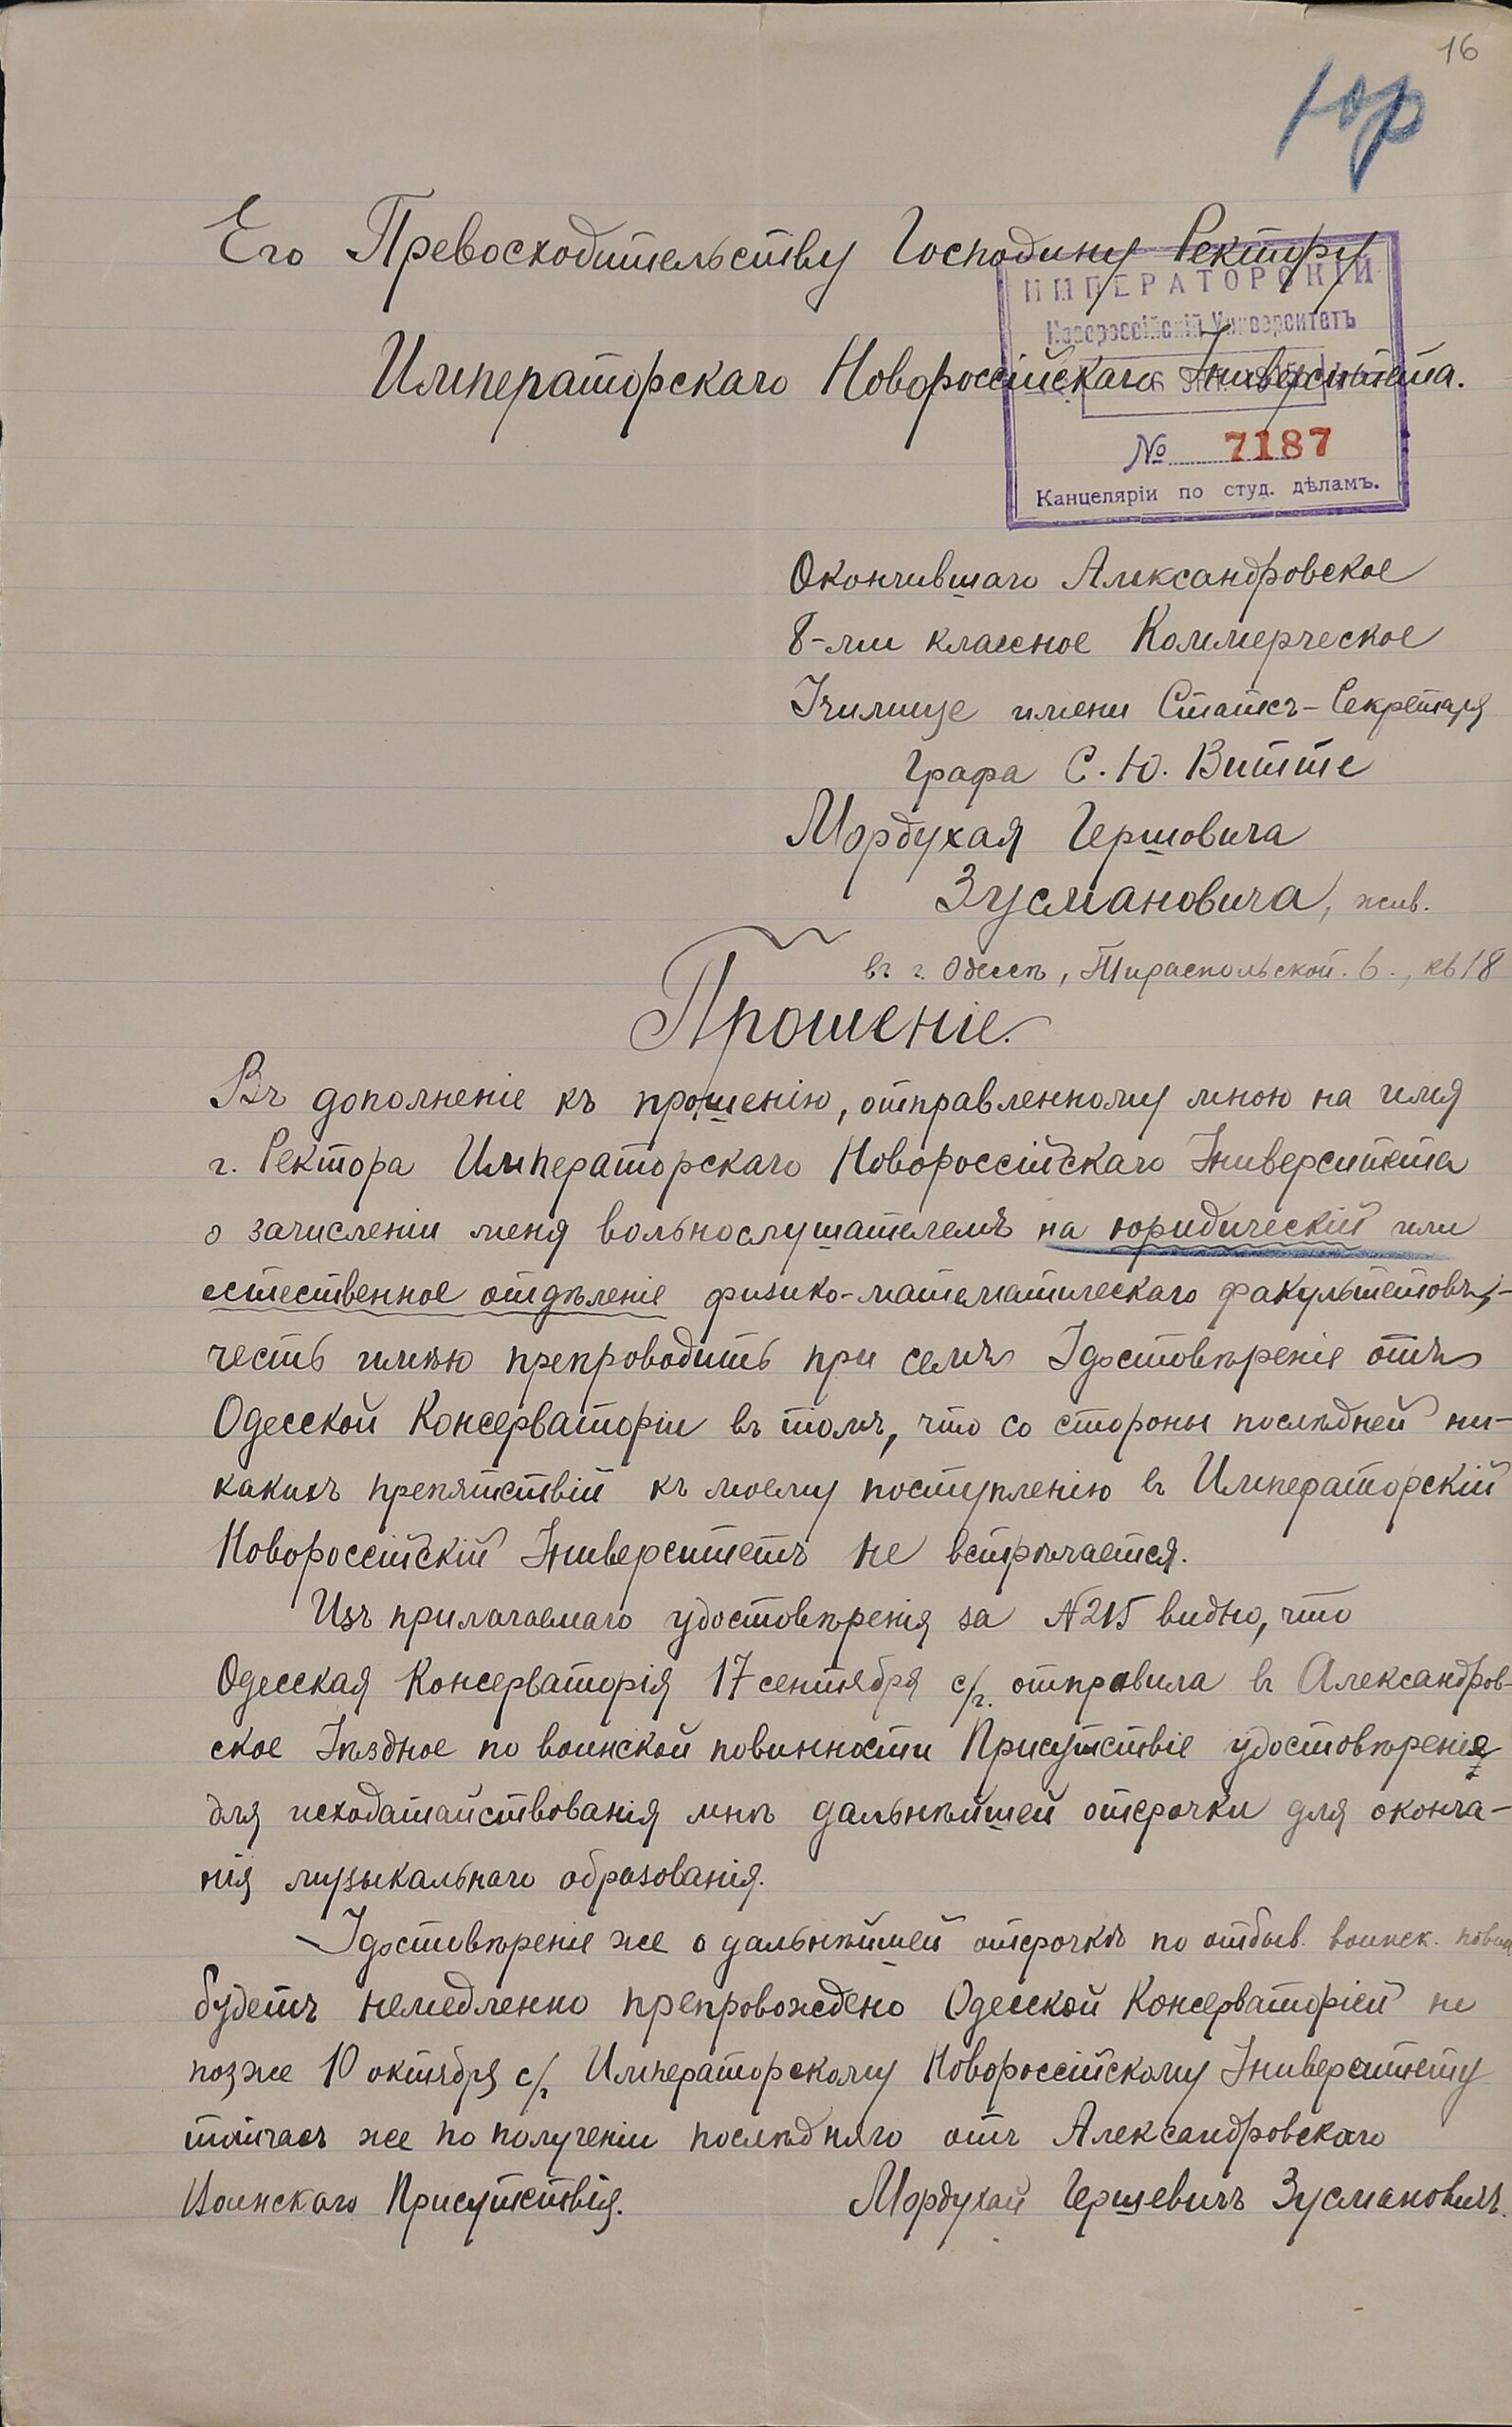 16
Юр
Его Превосходительству Господину Ректору
ИМПЕРАТОРСКІЙ
Новороссійскій Университетъ
Императорскаго Новороссійскаго Университета.
№ 7187
Канцеляріи по студ. дѣламъ.
Окончившаго Александровское
8-ми классное Коммерческое
Училище имени Статсъ-Секретаря
Графа С. Ю. Витте
Мордухая Гершовича
Зусмановича, жив.
въ г. Одессѣ, Тираспольской. 6., кв 18
Прошеніе.
Въ дополненіе къ прошенію, отправленному мною на имя
г. Ректора Императорскаго Новороссійскаго Университета
о зачисленіи меня вольнослушателемъ на юридическій или
естественное отдѣленіе физико-математическаго факультетовъ,-
честь имѣю препроводить при семъ Удостовѣреніе отъ
Одесской Консерваторіи въ томъ, что со стороны послѣдней ни-
какихъ препятствій къ моему поступленію въ Императорскій
Новороссійскій Университетъ не встрѣчается.
Изъ прилагаемаго удостовѣренія за №215 видно, что
Одесская Консерваторія 17 сентября с/г. отправила въ Александров-
ское Уѣздное по воинской повинности Присутствіе удостовѣренія
для исходатайствованія мнѣ дальнѣйшей отсрочки для оконча-
нія музыкальнаго образованія.
Удостовѣреніе же о дальнѣйшей отсрочкѣ по отбыв. воинск. повин
будетъ немедленно препровождено Одесской Консерваторіей не
позже 10 октября с/г Императорскому Новороссійскому Университету
тотчасъ же по полученіи послѣдняго отъ Александровскаго
Воинскаго Присутствія. Мордухай Гершевичъ Зусмановичъ.